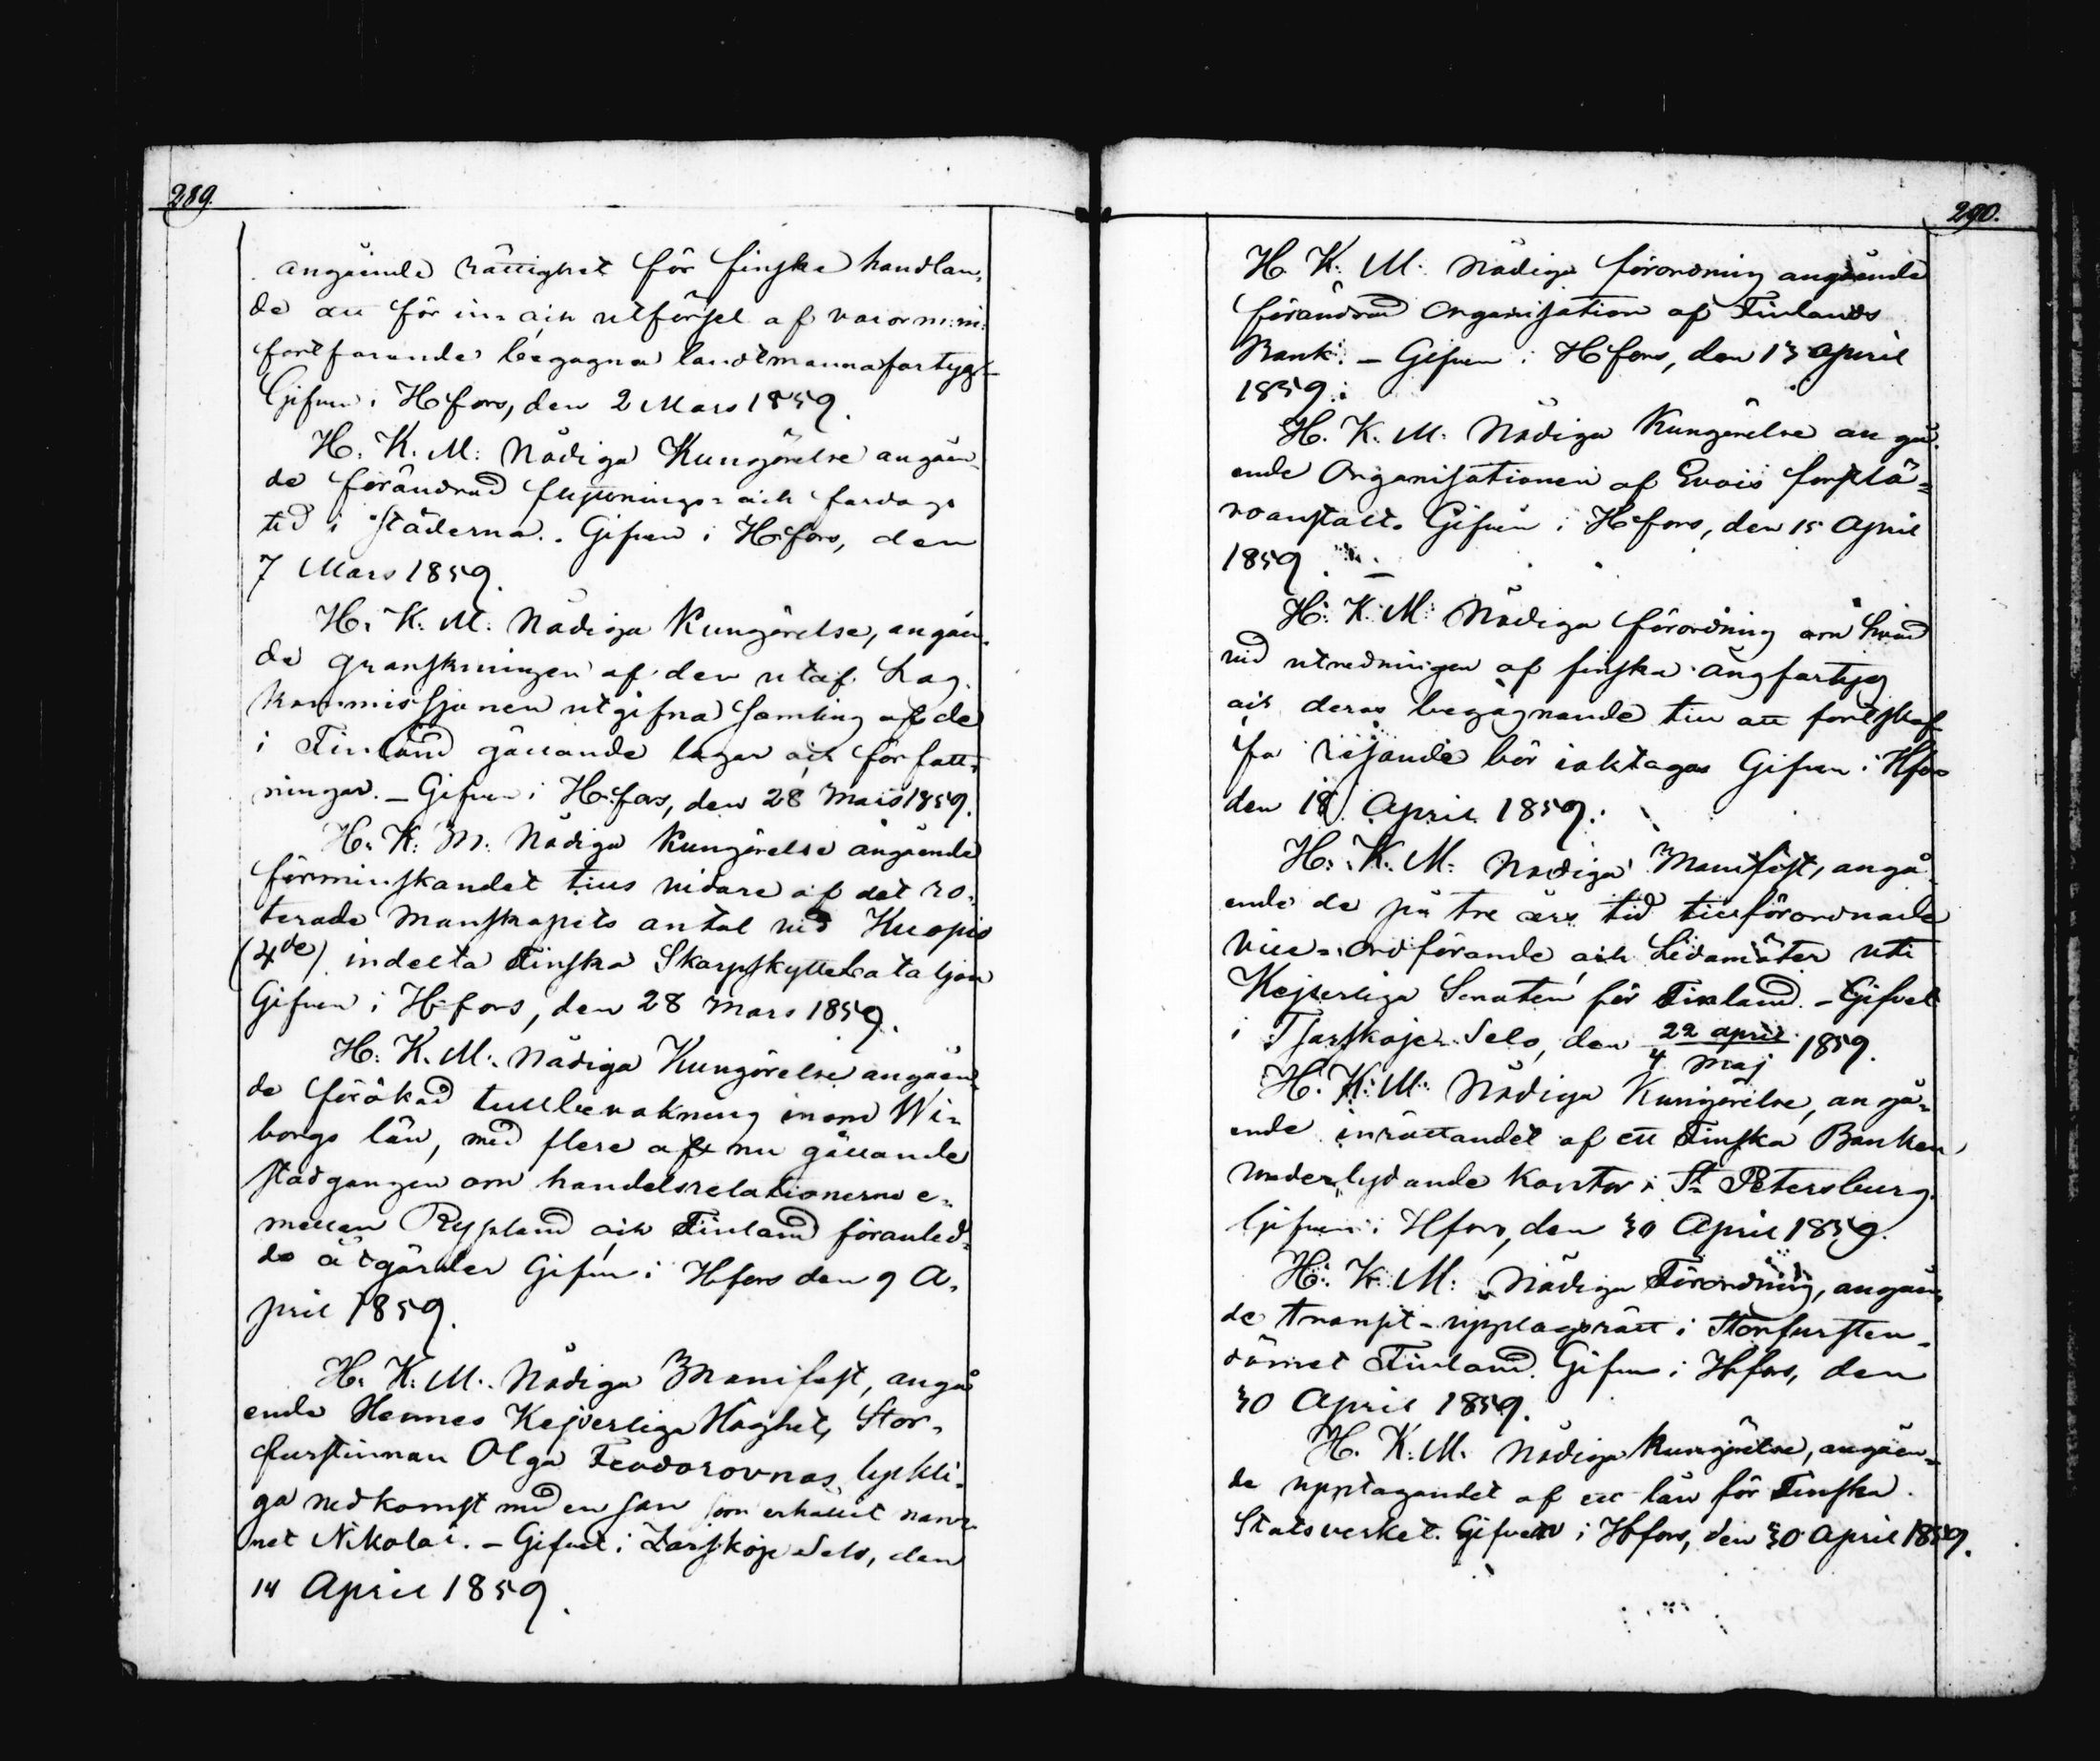 289.
angående rättighet för finska handlan-
de att för in- och utförsel af varor m: m:
fortfarande begagna landtmannafartyg.
Gifven i H:fors, den 2 Mars 1859.
H. K. M: Nådiga Kungörelse angåen-
de förändrad flyttnings- och fardags
tid i städerna. Gifven i H:fors, den
7 Mars 1859.
H. K. M: Nådiga Kungörelse, angåen-
de granskningen af den utaf Lag-
kommissjonen utgifna Samling af de
i Finland gällande lagar och författ-
ningar. – Gifven i H:fors, den 28 Mars 1859.
H. K. M. Nådiga Kungörelse angående
förminskandet tills vidare af det ro-
terade Manskapets antal vid Kuopio
(4de) indelta Finska Skarpskyttebataljon
Gifven i H:fors, den 28 Mars 1859.
H. K. M. Nådiga Kungörelse angåen-
de förökad tullbevakning inom Wi-
borgs län, med flere af nu gällande
stadganden om handelsrelationerne e-
mellan Ryssland och Finland föranled-
de åtgärder Gifven i H:fors den 9 A-
pril 1859.
H. K. M. Nådiga Manifest, angå
ende Hennes Kejserliga Höghet, Stor-
furstinnan Olga Feodorovnas lyckli-
ga nedkomst med en son som erhållit nam-
net Nikolai. – Gifvet i Zarskoje Selo, den
14 April 1859.
290.
H. K. M. Nådiga förordning angående
förändrad Organisation af Finlands
Bank. – Gifven i H:fors, den 13 April
1859.
H. K. M. Nådiga Kungörelse angå-
ende Organisationen af Evois forstlä-
roanstalt. Gifven i H:fors, den 15 April
1859.
H. K. M. Nådiga förordning om hvad
vid utredningen af finska ångfartyg
och deras begagnande till att fortskaf-
fa resande bör iakttagas Gifven i Hfors
den 18 April 1859.
H. K. M. Nådiga Manifest, angå
ende de på tre års tid tillförordnade
Vice-ordförande och Ledamöter uti
Kejserliga Senaten för Finland. – Gifvet
i Tsarskoje Selo, den 22 april / 4 Maj 1859.
H. K. M. Nådiga Kungörelse, angå-
ende inrättandet af ett Finska Banken
underlydande Kontor i S:t Petersburg.
Gifven i Hfors, den 30 April 1859.
H. K. M: Nådiga Förordning, angåen-
de transit-upplagsrätt i Storfursten-
dömet Finland. Gifven i H:fors, den
30 April 1859.
H. K. M. Nådiga Kungörelse, angåen-
de upptagandet af ett lån för Finska
Statsverket. Gifven i H:fors, den 30 April 1859.